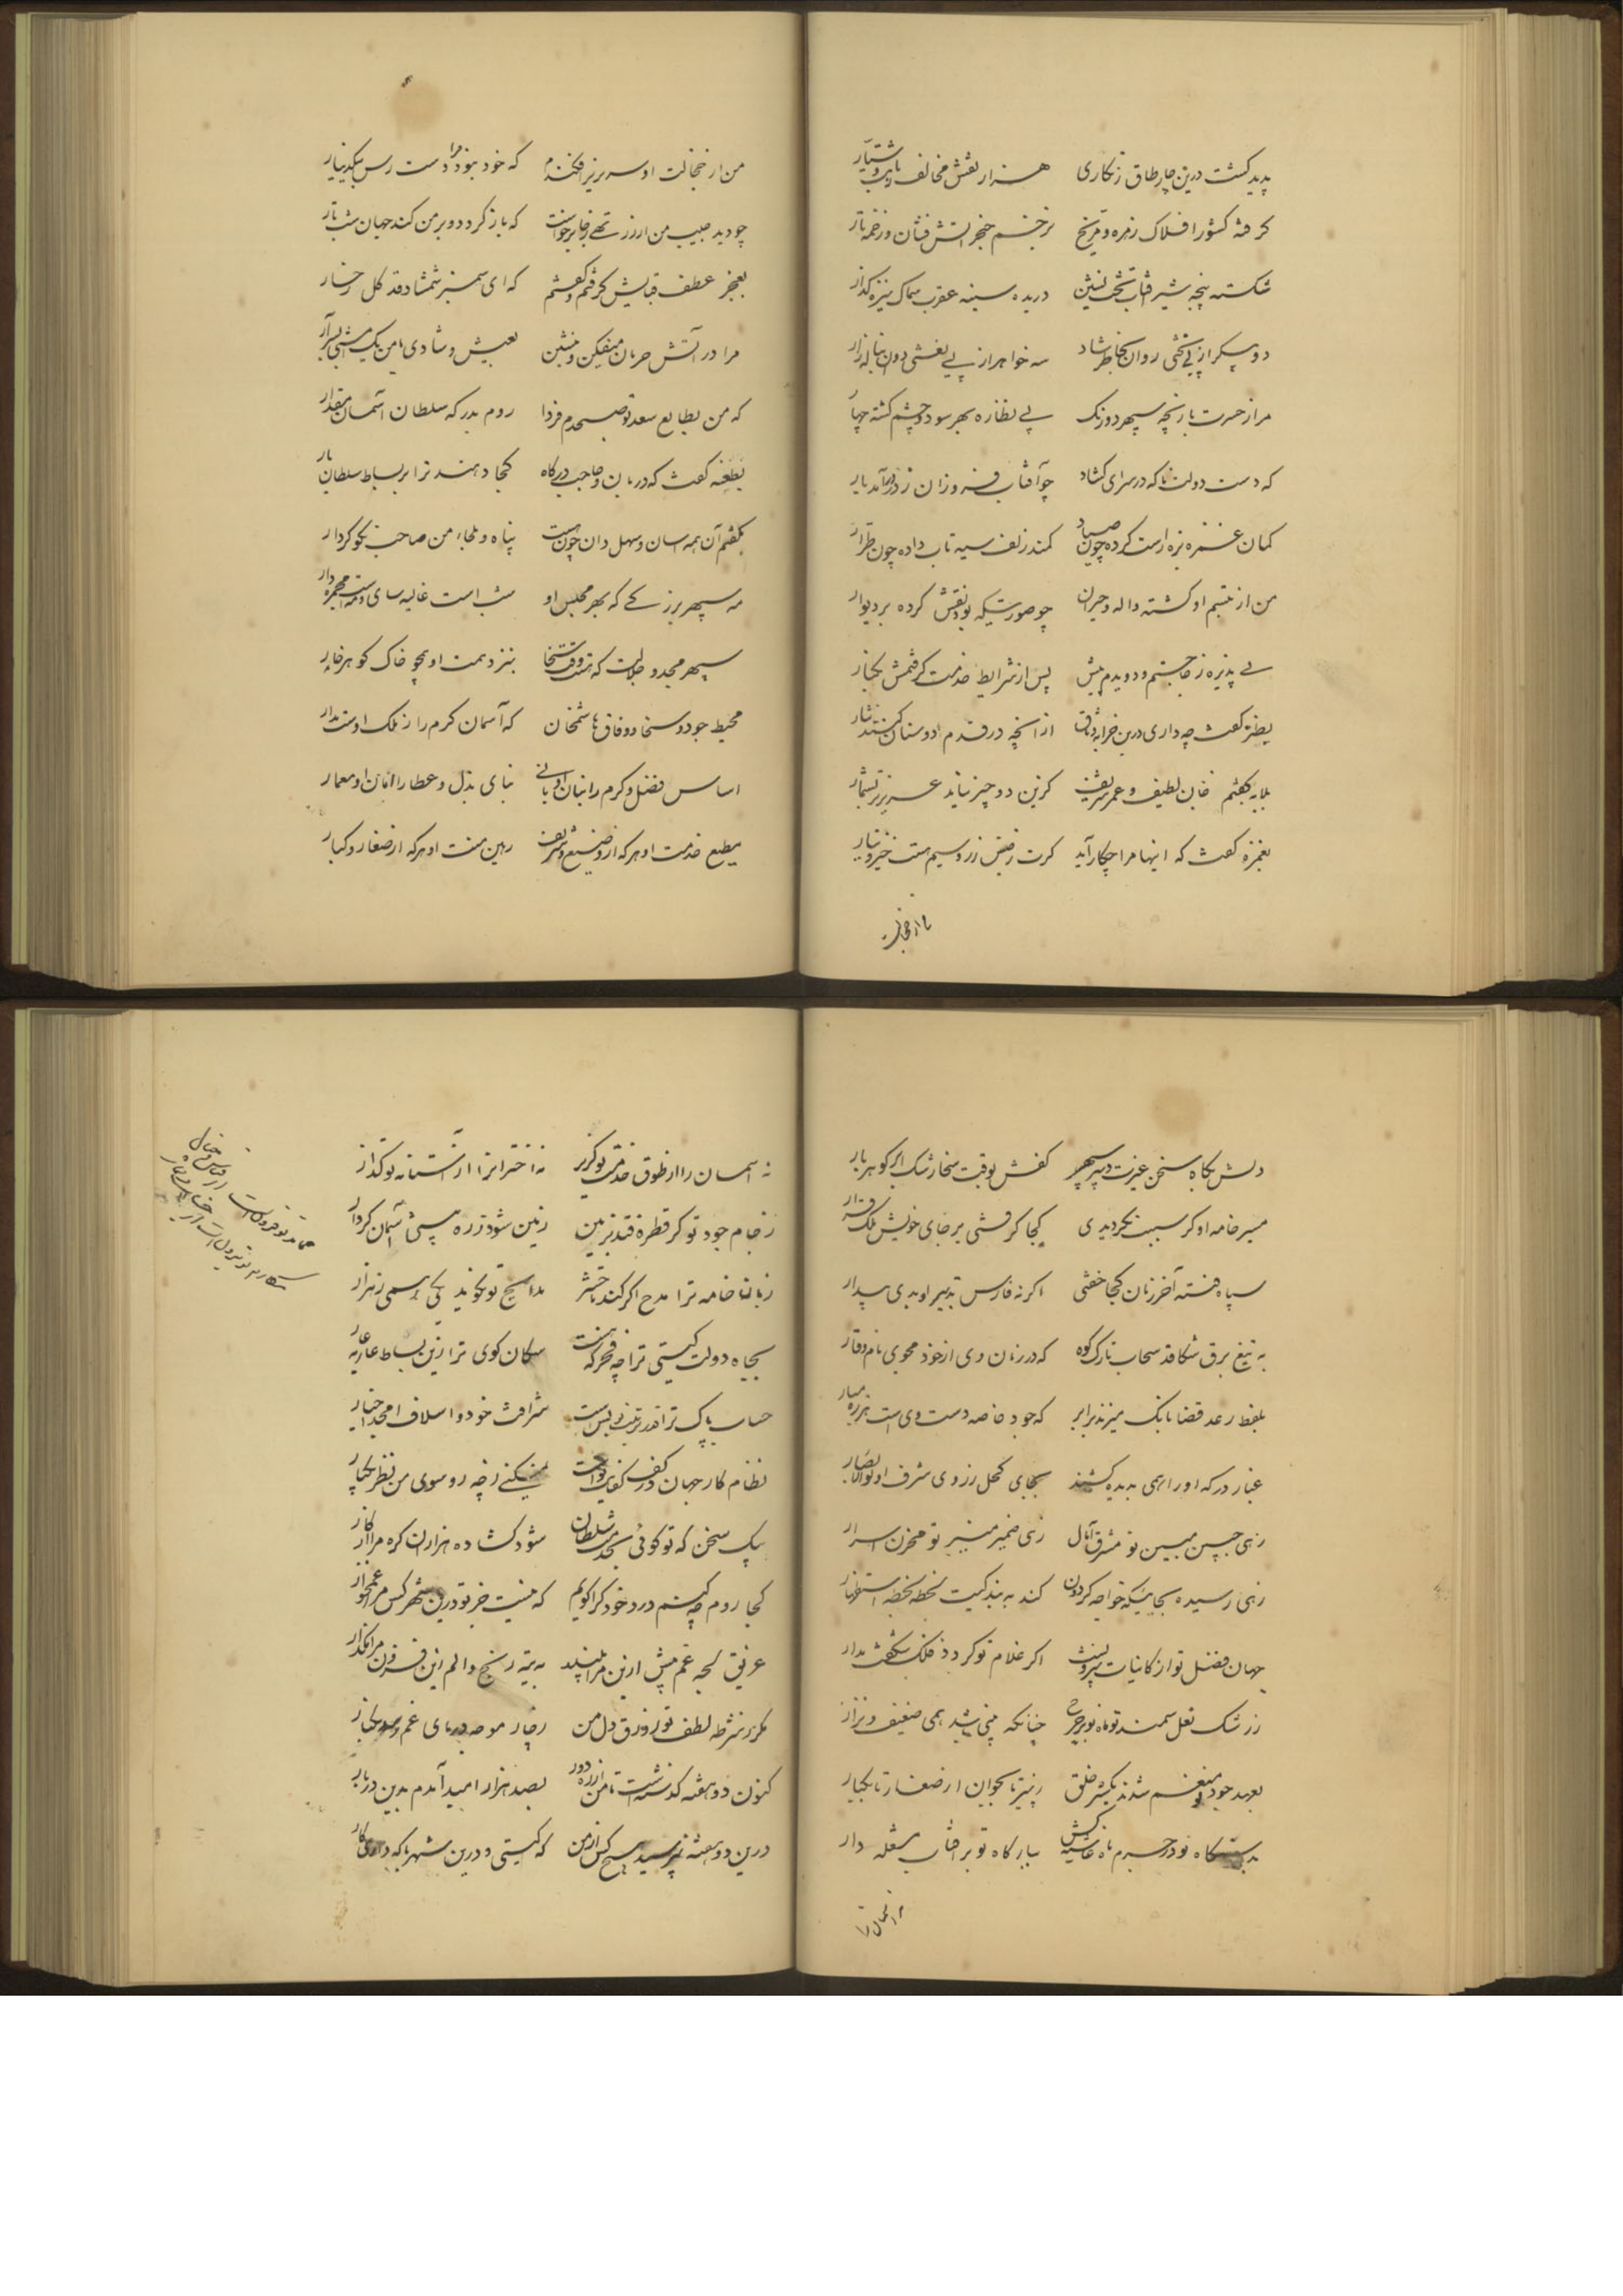 پدید کشت درین چارطاق زنکاری هزار نقش مخالف ز ثابت و سیار
کرفته کشور افلاک زهره و مریخ بزخم خنجر آتش فشان و زخمه تار
شکسته پنجه شیر آفتاب تخت نشین دریده سینه عقرب سماک نیزه کذار
دو پیکر از پی تختی روان بخاطر شاد سه خواهر از پی نعشی دوان بناله زار
مرا ز حسرت بازیچه سپهر دو رنک پی نظاره بهر سو دو چشم کشته چهار
که دست دولت ناکه در سرای کشاد چو آفتاب فروزان ز در درآمد یار
کمان غمزه بزه راست کرده چون صیاد کمند زلف سیه تاب داده چون طرار
من از تبسم او کشته واله و حیران چو صورتیکه بود نقش کرده بر دیوار
پی پذیره ز جا جستم و دویدم پیش پس از شرایط خدمت کرفتمش بکنار
بطنز کفت چه داری درین خرابه وثاق از آنچه در قدم دوستان کنند نثار
بلابه کفتم جان لطیف و عمر شریف کزین دو چیز نباید عزیزتر بشمار
بغمزه کفت که اینها مرا چکار آید کرت ز فیض زر و سیم هست خیز و بیار
من از خجالت
من از خجالت او سر بزیر افکندم که خود نبود مرا دست رس بیکدینار
چو دید حبیب من از زر تهی ز جا برخواست که باز کردد و بر من کند جهان شب تار
بعجز عطف قبایش کرفتم و کفتم که ای سمنبر شمشاد قد کل رخسار
مرا در آتش حرمان میفکن و بنشین بعیش و شادی با من یک امشبی بسر آر
که من بطالع سعد تو صبحدم فردا روم بدرکه سلطان آسمان مقدار
بطعنه کفت که دربان و حاجب درکاه کجا دهند ترا بر بساط سلطان بار
بکفتم آن همه آسان و سهل دان چون هست پناه و ملجاء من صاحب نکو کردار
مه سپهر بزرکی که بهر مجلس او شب است غالیه سای و مه است مجمره دار
سپهر مجد و جلالت که وقت سخا بنزد همت او همچو خاک کوهر خوار
محیط جود و سخا و وفاق هاشمخان که آسمان کرم را ز ملک اوست مدار
اساس فضل و کرم را بنان او بانی بنای بذل و عطا را امان او معمار
مطیع خدمت او هر که از وضیع و شریف رهین منت او هر که از صغار و کبار
دلش بکاه سخن غیرت سپهر کفش بوقت سخا رشک ابر کوهر بار
مسیر خامه او کر سبب نکردیدی کجا کرفتی بر جای خویش ملک قرار
سپاه فتنه آخر زمان کجا خفتی اکر نه فارس تدبیر او بدی بیدار
به تیغ برق شکافد سحاب تارک کوه که در زمان وی از خود محوی نام وقار
بلفظ رعد قضا بانک میزند بر ابر که جود خاصه دست وی است هرزه مبار
غبار درکه او را همی بدیده کشند بجای کحل ز روی شرف اولو الابصار
زهی جبین مبین تو مشرق آمال زهی ضمیر منیر تو مخزن اسرار
زهی رسیده بجائیکه خواجه کردون کند به بندکیت لحظه لحظه استظهار
جهان فضل تو از کاینات بیرونست اکر غلام تو کردد فلک شکفت مدار
ز رشک نعل سمند تو ماه نو بر چرخ چنانکه بینی باشد همی ضعیف و نزار
بعهد جود تو منعم شدند یکسر خلق ز پیر تا بجوان از صغار تا بکبار
بدستکاه تو در جرم ماه غاشیه کش ببارکاه تو بر آفتاب مشعله دار
نه آسمان را
نه آسمان را از طوق خدمت تو کزیر نه اختران را از آستانه تو کذار
ز جام جود تو کر قطره فتد بزمین زمین شود ز ره مستی آسمان کردار
زبان خامه ترا مدح اکر کند تا حشر مدایح تو نکوید یکی همی ز هزار
بجاه دولت کیتی ترا چه فخر که هست سکان کوی ترا زین بساط عاریه عار
حساب پاک ترا قدر و مرتبت بس است شرافت خود و اسلاف امجد اخیار
نظام کار جهان در کف کفایت تست نمیکنی ز چه رو سوی من نظر یکبار
بیک سخن که تو کوئی بخدمت سلطان شود کشاده هزاران کره مرا از کار
کجا روم چه کنم درد خود کرا کویم که نیست جز تو درین شهر کس مرا غمخوار
غریق لجه غم بیش ازین مرا مپسند به تیه رنج و الم این قدر مرا مکذار
مکر ز شرطه لطف تو زورق دل من ز چار موجه دریای غم رسد بکنار
کنون دو هفته کذشتست تا من از ره دور بصد هزار امید آمدم بدین دربار
درین دو هفته نپرسید هیچ کس از من که کیستی و درین شهر با که داری کار